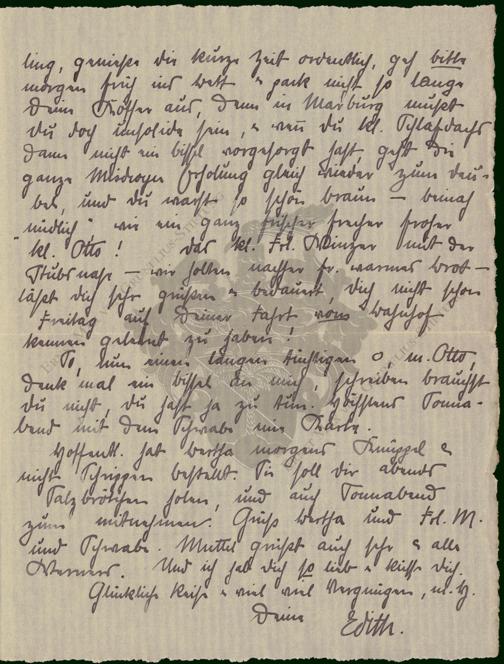 ling, genieße die kurze Zeit ordentlich, geh bitte
morgen früh ins Bett & pack nicht so lange
Deine Koffer aus, denn in Marburg mußt
du doch unsolide sein, & wenn du kl. Schlafdachs
dann nicht ein bissel vorgesorgt hast, geht die
ganze Erholung gleich wieder "zum Deu-
bel, und du warst so schön braun – beinah
niedlich", wie ein ganz frischer frecher froher
"kl. Otto!" Das kl. Frl. Winzer mit der
Stubsnase – wir holten nachher fr. warmes Brot –
läßt dich sehr grüßen & bedauert, dich nicht schon
Freitag auf deiner Fahrt vom Bahnhof
kennen gelernt zu haben!
So, nun einen langen tüchtigen o, m. Otto,
denk mal ein bissel an mich, schreiben brauchst
du nicht, du hast ja zu tun. Höchstens Sonna-
bend mit dem Schwabe eine Karte.
Hoffentl. hat Bertha morgens Knüppel &
nicht Schrippen bestellt. Sie soll dir abends
Salzbrötchen holen, und auch Sonnabend
zum mitnehmen. Grüß Bertha und Frl. M.
und Schwabe. Muttel grüßt auch sehr & alle
Werners. Und ich hab dich so lieb & küsse dich.
Glückliche Reise & viel viel Vergnügen, m. H.
Deine Edith.